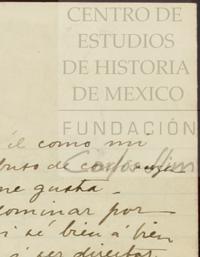 CENTRO DE
ESTUDIOS
DE HISTORIA
DE MEXICO
FUNDACIÓN
Carlos Slim
él como mi
de
me gusta -
dominar por
i sé bien a bien